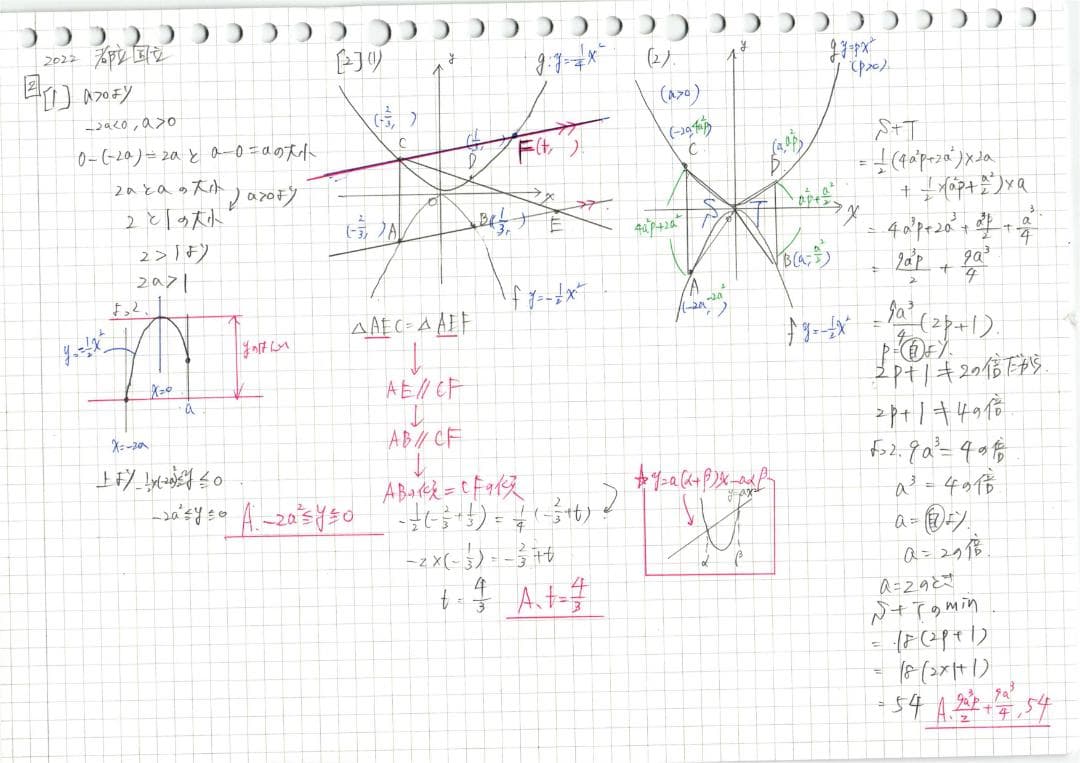 2022 都立国立
2
[1] a>0より
-2a<0, a>0
0-(-2a)=2aとa-0=aの大小
2aとaの大小
a>0より
2と1の大小
2>1より
2a>1
よって
y=-1/2x²
x=0
a
x=-2a
上より -1/2×(-2a)²≦y≦0
-2a²≦y≦0
A. -2a²≦y≦0
[2](1)
y
g: y=1/4x²
(-2/3, )
C
(1/3, )
D
F(t, )
x
O
(-2/3, )A
B(1/3, )
E
f y=-1/2x²
△AEC=△AEF
↓
AE//CF
↓
AB//CF
↓
ABの傾=CFの傾
-1/2(-2/3+1/3)=1/4(-2/3+t)
-2×(-1/3)=-2/3+t
t=4/3
A. t=4/3
☆y=a(α+β)x-aαβ
y=ax²
α β
(2).
y
g y=px²
(p>0)
(a>0)
(-2a, 4a²p)
C
(a, a²p)
D
a²p+a²/2
4a²p+2a²
S T
O
x
B(a, -a²/2)
A
(-2a, -2a²)
f y=-1/2x²
S+T
=1/2(4a²p+2a²)×2a
+1/2×(a²p+a²/2)×a
=4a³p+2a³+a³p/2+a³/4
=9a³p/2+9a³/4
=9a³/4(2p+1).
p=自より.
2p+1≠2の倍だから
2p+1≠4の倍
よって. 9a³=4の倍
a³=4の倍
a=自より.
a=2の倍.
a=2のとき
S+Tのmin
=18(2p+1)
=18(2×1+1)
=54
A. 9a³p/2+9a³/4, 54